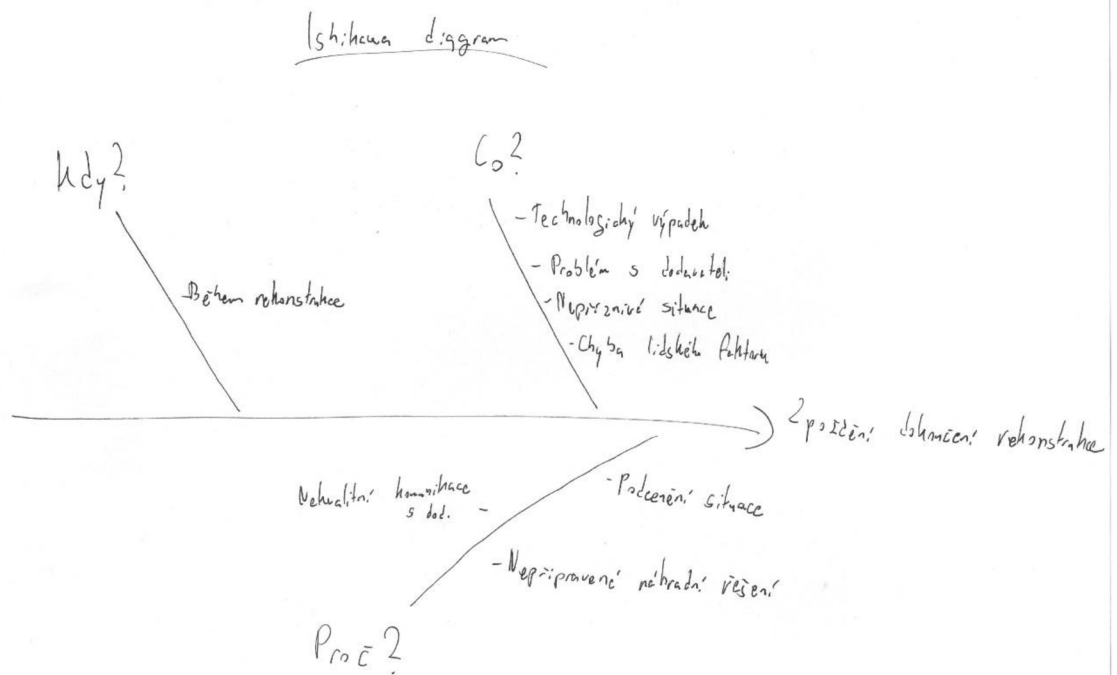 Ishikawa diagram
Kdy?
Co?
- Technologický výpadek
- Problém s dodavateli
- Nepříznivé situace
- Chyba lidského faktoru
- Během rekonstrukce
Zpoždění dokončení rekonstrukce
Nekvalitní komunikace
s dod. -
- Podcenění situace
- Nepřipravené náhradní řešení
Proč?